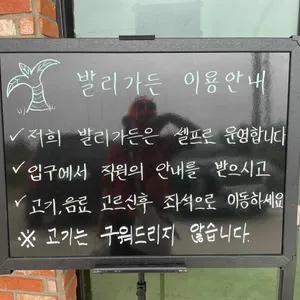 발리가든 이용안내
✓ 저희 발리가든은 셀프로 운영합니다
✓ 입구에서 직원의 안내를 받으시고
✓ 고기,음료 고르신후 좌석으로 이동하세요
※ 고기는 구워드리지 않습니다.